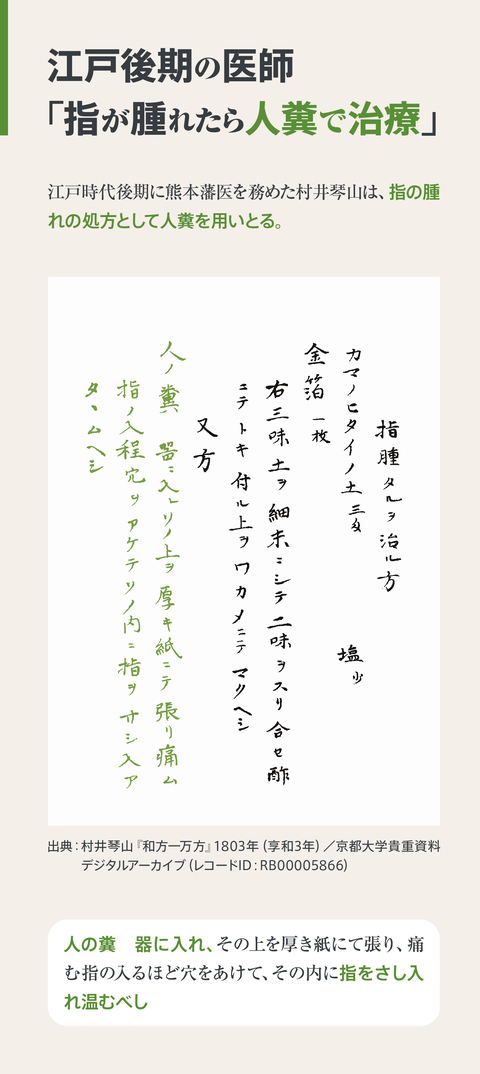 江戸後期の医師
「指が腫れたら人糞で治療」
江戸時代後期に熊本藩医を務めた村井琴山は、指の腫
れの処方として人糞を用いとる。
指腫タルヲ治ル方
カマノヒタイノ土 三匁 塩 少
金箔 一枚
右三味土ヲ細末ニシテ二味ヲスリ合セ酢
ニテトキ付ル上ヲワカメニテマクヘシ
又方
人ノ糞 器ニ入レソノ上ヲ厚キ紙ニテ張リ痛ム
指ノ入程穴ヲアケテソノ内ニ指ヲサシ入ア
タヽムヘシ
出典：村井琴山『和方一万方』1803年（享和3年）／京都大学貴重資料
デジタルアーカイブ（レコードID：RB00005866）
人の糞　器に入れ、その上を厚き紙にて張り、痛
む指の入るほど穴をあけて、その内に指をさし入
れ温むべし